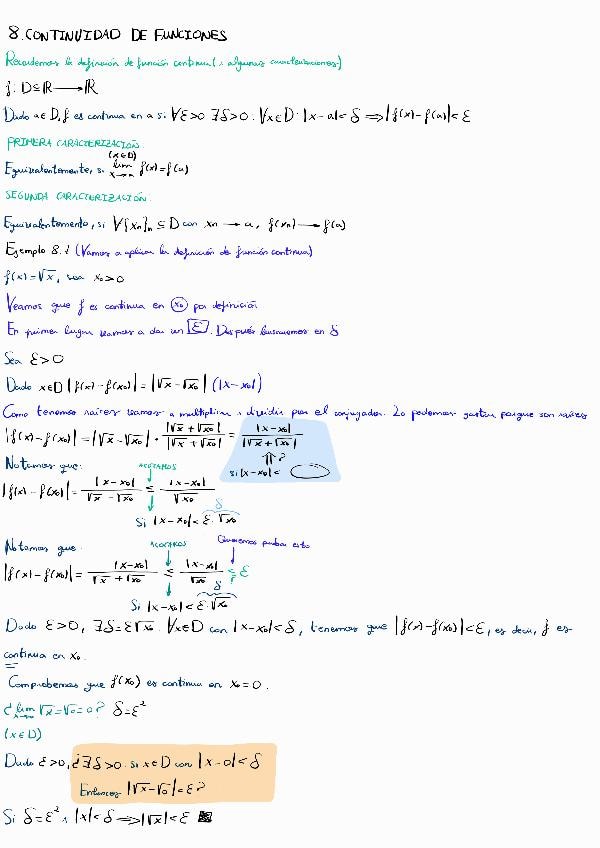 8. CONTINUIDAD DE FUNCIONES
Recordemos la definición de función continua (y algunas caracterizaciones)
f: D⊆ℝ⟶ℝ
Dado a∈D, f es continua en a si ∀ε>0 ∃δ>0: ∀x∈D: |x-a|<δ ⟹ |f(x)-f(a)|<ε
PRIMERA CARACTERIZACIÓN.
(x∈D)
Equivalentemente, si lim x→a f(x)=f(a)
SEGUNDA CARACTERIZACIÓN.
Equivalentemente, si ∀{xn}n ⊆ D con xn ⟶ a, f(xn) ⟶ f(a)
Ejemplo 8.1 (Vamos a aplicar la definición de función continua)
f(x)=√x, sea x₀>0
Veamos que f es continua en x₀ por definición
En primer lugar vamos a dar un ε. Después buscaremos en δ
Sea ε>0
Dado x∈D |f(x)-f(x₀)|=|√x-√x₀| (|x-x₀|)
Como tenemos raíces vamos a multiplicar y dividir por el conjugado. Lo podemos quitar porque son raíces
|f(x)-f(x₀)|=|√x-√x₀| · |√x+√x₀| / |√x+√x₀| = |x-x₀| / |√x+√x₀|
⇑?
si |x-x₀|<
Notamos que: ACOTAMOS
|f(x)-f(x₀)| = |x-x₀| / √x-√x₀ ≤ |x-x₀| / √x₀
δ
Si |x-x₀|<ε·√x₀
Notamos que: ACOTAMOS Queremos probar esto
|f(x)-f(x₀)| = |x-x₀| / √x+√x₀ ≤ |x-x₀| / √x₀ ≤? ε
δ
Si |x-x₀|<ε·√x₀
Dado ε>0, ∃δ=ε√x₀: ∀x∈D con |x-x₀|<δ, tenemos que |f(x)-f(x₀)|<ε, es decir, f es
continua en x₀.
Comprobemos que f(x₀) es continua en x₀=0.
¿lim √x=√0=0? δ=ε²
(x∈D)
Dado ε>0, ¿∃δ>0: si x∈D con |x-0|<δ
Entonces |√x-√0|<ε?
Si δ=ε² y |x|<δ ⟹ |√x|<ε